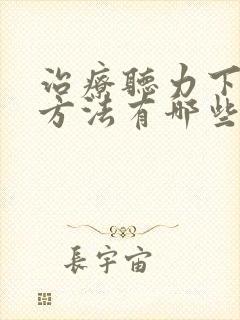 治療聽力下
方法有哪些
長宇宙